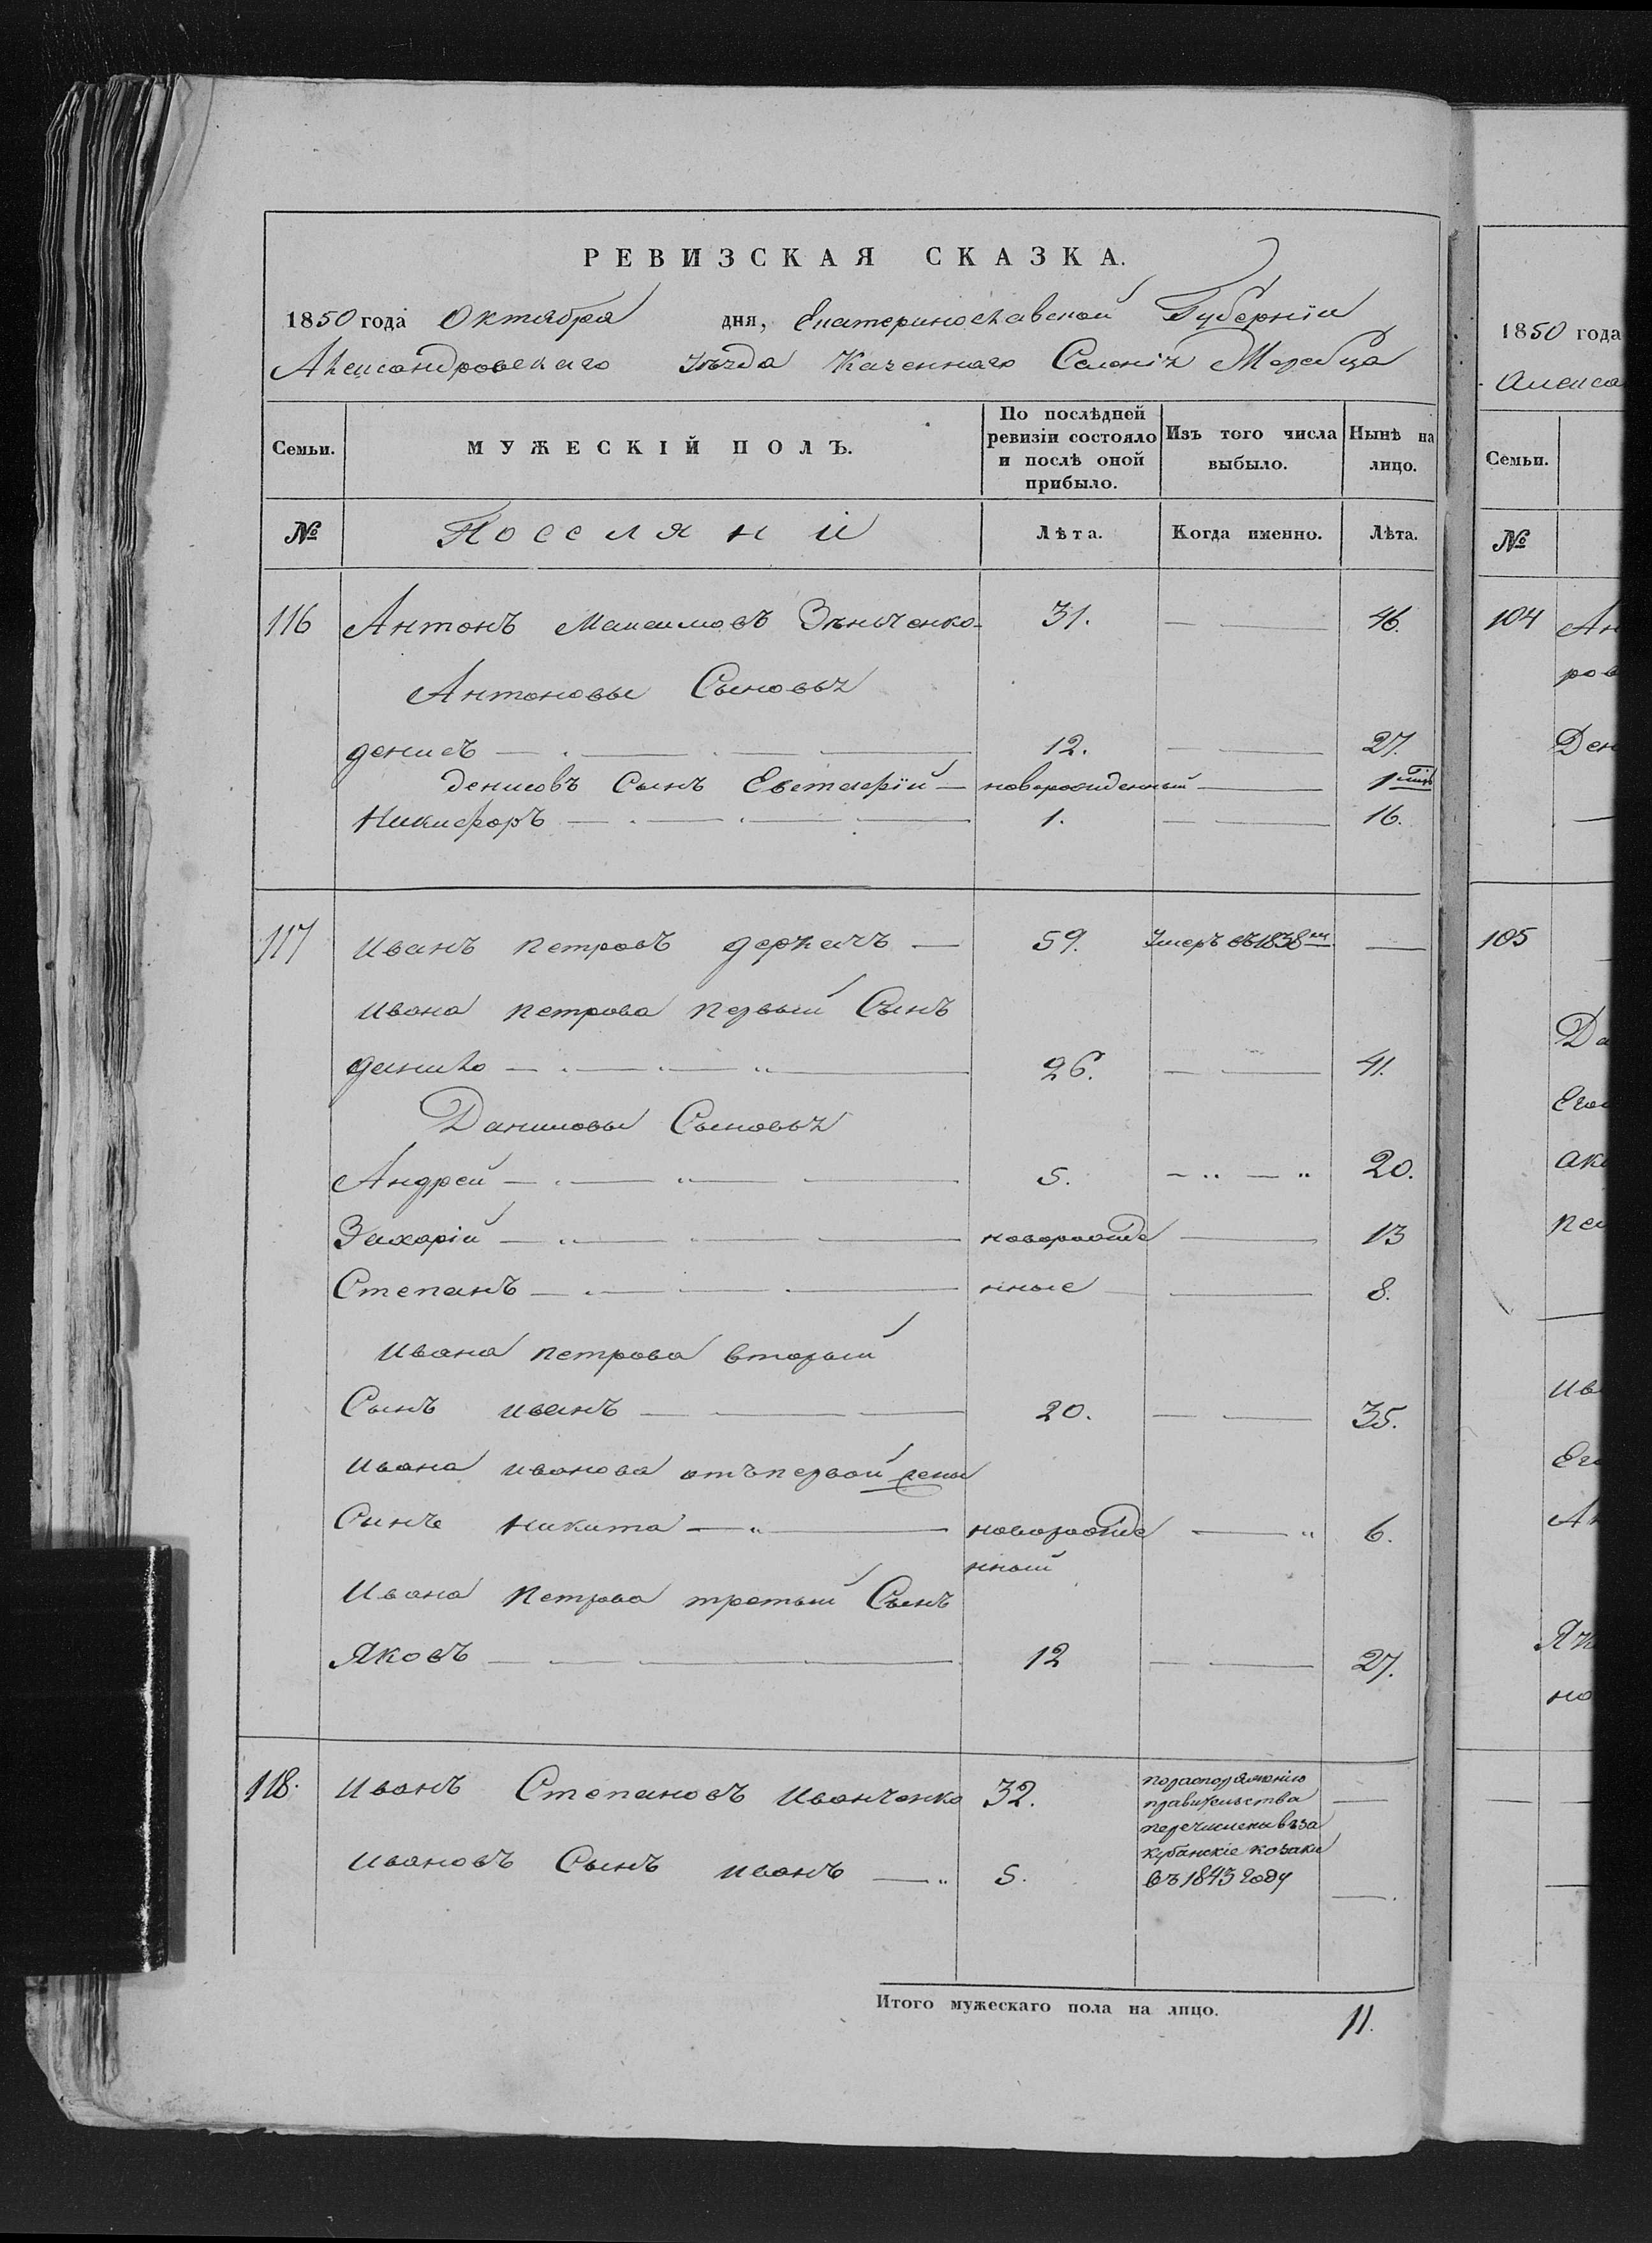 РЕВИЗСКАЯ СКАЗКА.
1850 года Октября дня, Екатеринославской Губернїи
Александровскаго уѣзда Казеннаго Селенія Жеребца
Семьи.
МУЖЕСКІЙ ПОЛЪ.
По послѣдней ревизіи состояло и послѣ оной прибыло.
Изъ того числа выбыло.
Нынѣ на лицо.
№ Поселяни Лѣта. Когда именно. Лѣта.
116 Антонъ Максимовъ Зѣньченко 31. — 46.
Антоновы Сыновья
денисъ — 12. — 27.
денисовъ Сынъ Евстафїй — новорожденный — 1
Никифоръ — 1. — 16.
117 Иванъ петровъ деркачъ — 59. Умеръ въ 1838 м —
Ивана петрова первый Сынъ
данило — 26. — 41.
Даниловы Сыновья
Андрей — 5. — 20.
Захарій — новорожде — 13
Степанъ — нные — 8.
Ивана петрова вторый
Сынъ иванъ — 20. — 35.
Ивана иванова отъ первой жены
Сынъ никита — новорожде — 6.
нный
Ивана петрова третый Сынъ
Яковъ — 12 — 27.
118. Иванъ Степановъ Иванченко 32. —
по распоряженію
правительства
перечислены въ за
кубанскіе козаки
въ 1843 году
Ивановъ Сынъ иванъ — 5. —
Итого мужескаго пола на лицо. 11.
1850 года
Алекса
Семьи.
№
104 Ан
ров
Ден
105
Да
Его
Ив
Ег
но